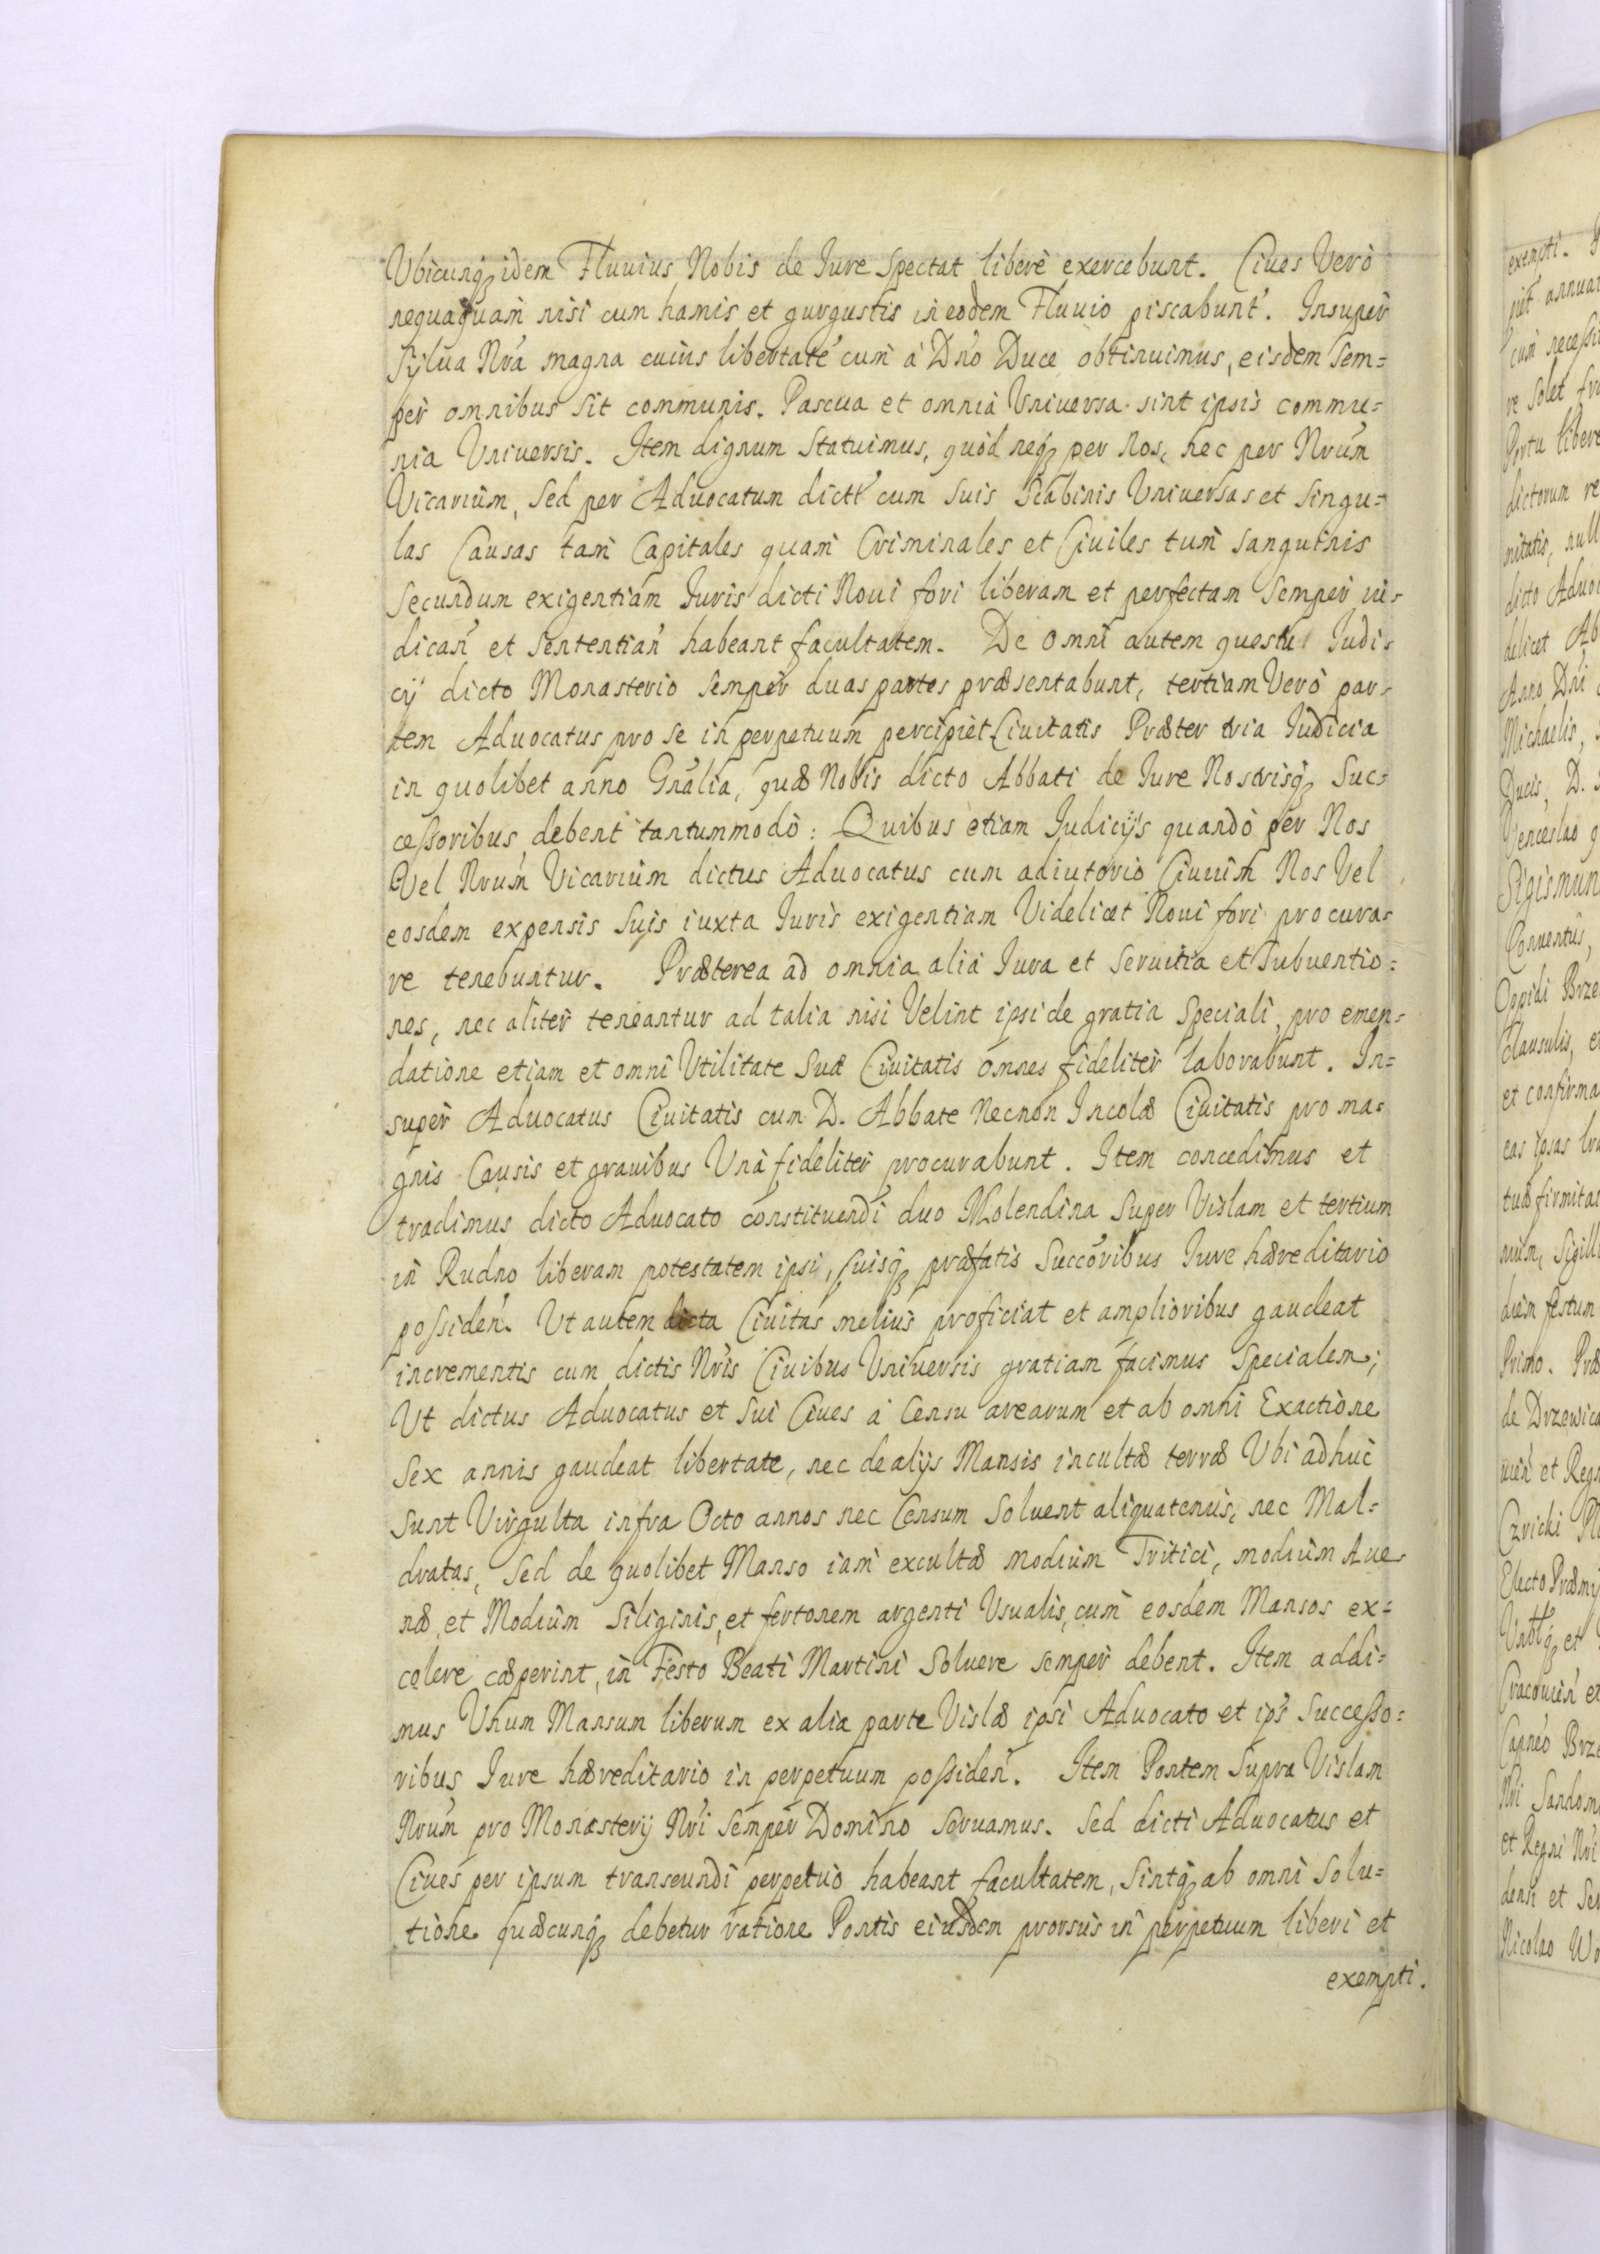 Ubicunq idem Fluuius Nobis de Jure spectat liberè exercebunt. Ciues Verò
nequaquam nisi cum hamis et gurgustis in eodem Fluuio piscabunt'. Insuper
Sylua Nr̃a magna cuius libertate' cum à Dn̄o Duce obtinuimus, eisdem Sem=
per omnibus sit communis. Pascua et omnia Vniuersa sint ipsis commu=
nia Vniuersis. Item dignum Statuimus, quòd neq per Nos, nec per Nrum
Vicarium, sed per Aduocatum dict' cum suis Scabinis Vniuersas et Singu=
las Causas tam Capitales quam Criminales et Ciuiles tum sanguinis
Secundum exigentiam Juris dicti Noui fori liberam et perfectam Semper iu=
dicań et Sententiań habeant facultatem. De omni autem questu Judi=
cij dicto Monasterio semper duas partes præsentabunt, tertiam Verò par=
tem Aduocatus pro se in perpetuum percipiet Ciuitatis Præter tria Judicia
in quolibet anno Grãlia, quæ Nobis dicto Abbati de Jure Nostrisq Suc=
cessoribus debent tantummodò: Quibus etiam Judicijs quandò per Nos
Vel Nrum Vicarium dictus Aduocatus cum adiutorio Ciuium Nos Vel
eosdem expensis suis iuxta Juris exigentiam Videlicet Noui fori procura=
re tenebuntur. Præterea ad omnia alia Jura et Seruitia et Subuentio=
nes, nec aliter teneantur ad talia nisi Velint ipsi de gratia Speciali, pro emen=
datione etiam et omni Vtilitate Suæ Ciuitatis omnes fideliter laborabunt. In=
super Aduocatus Ciuitatis cum D. Abbate Necnon Incolæ Ciuitatis pro ma=
gnis Causis et grauibus Vnà fideliter procurabunt. Item concedimus et
tradimus dicto Aduocato constituendi duo Molendina Super Vislam et tertium
in Rudno liberam potestatem ipsi, suisq præfatis Succoribus Jure hæreditario
possideń. Ut autem dicta Ciuitas melius proficiat et amplioribus gaudeat
incrementis cum dictis Nris Ciuibus Vniuersis gratiam facimus Specialem;
Ut dictus Aduocatus et Sui Ciues à Censu arearum et ab omni Exactione
Sex annis gaudeat libertate, nec de alijs Mansis incultæ terræ Vbi adhuc
sunt Virgulta infra Octo annos nec Censum Soluent aliquatenus, nec Mal=
dratas, Sed de quolibet Manso iam excultæ modium Tritici, modium Aue=
næ, et Modium Siliginis, et fertonem argenti Vsualis, cum eosdem Mansos ex=
colere cæperint, in Festo Beati Martini Soluere semper debent. Item addi=
mus Vnum Mansum liberum ex alia parte Vislæ ipsi Aduocato et ips' Successo=
ribus Jure hæreditario in perpetuum possideń. Item Pontem Supra Vislam
Nrum pro Monasterij Nri Semper Domino seruamus. Sed dicti Aduocatus et
Ciues per ipsum transeundi perpetuò habeant facultatem, Sintq ab omni Solu=
tione quæcunq debetur ratione Pontis eiusdem prorsus in perpetuum liberi et
exempti.
exempti.
annua
cum necessi
re solet fru
Portu libere
dictorum re
nitatis, null
dicto Aduo
delicet Ab
Anno Dni
Michaelis,
Ducis, D.
Venceslao g
Sigismun
Conuentus,
Oppidi Brze
clausulis, e
et confirma
eas ipsas lra
tuæ firmitat
num, Sigill
diem festum
Primo. Præ
de Drzewica
et Regn
Czricki
Electo Præmy
et
Cracouień et
Brze
Nri Sandom
et Regni Nri
densi et Se
Nicolao Wo